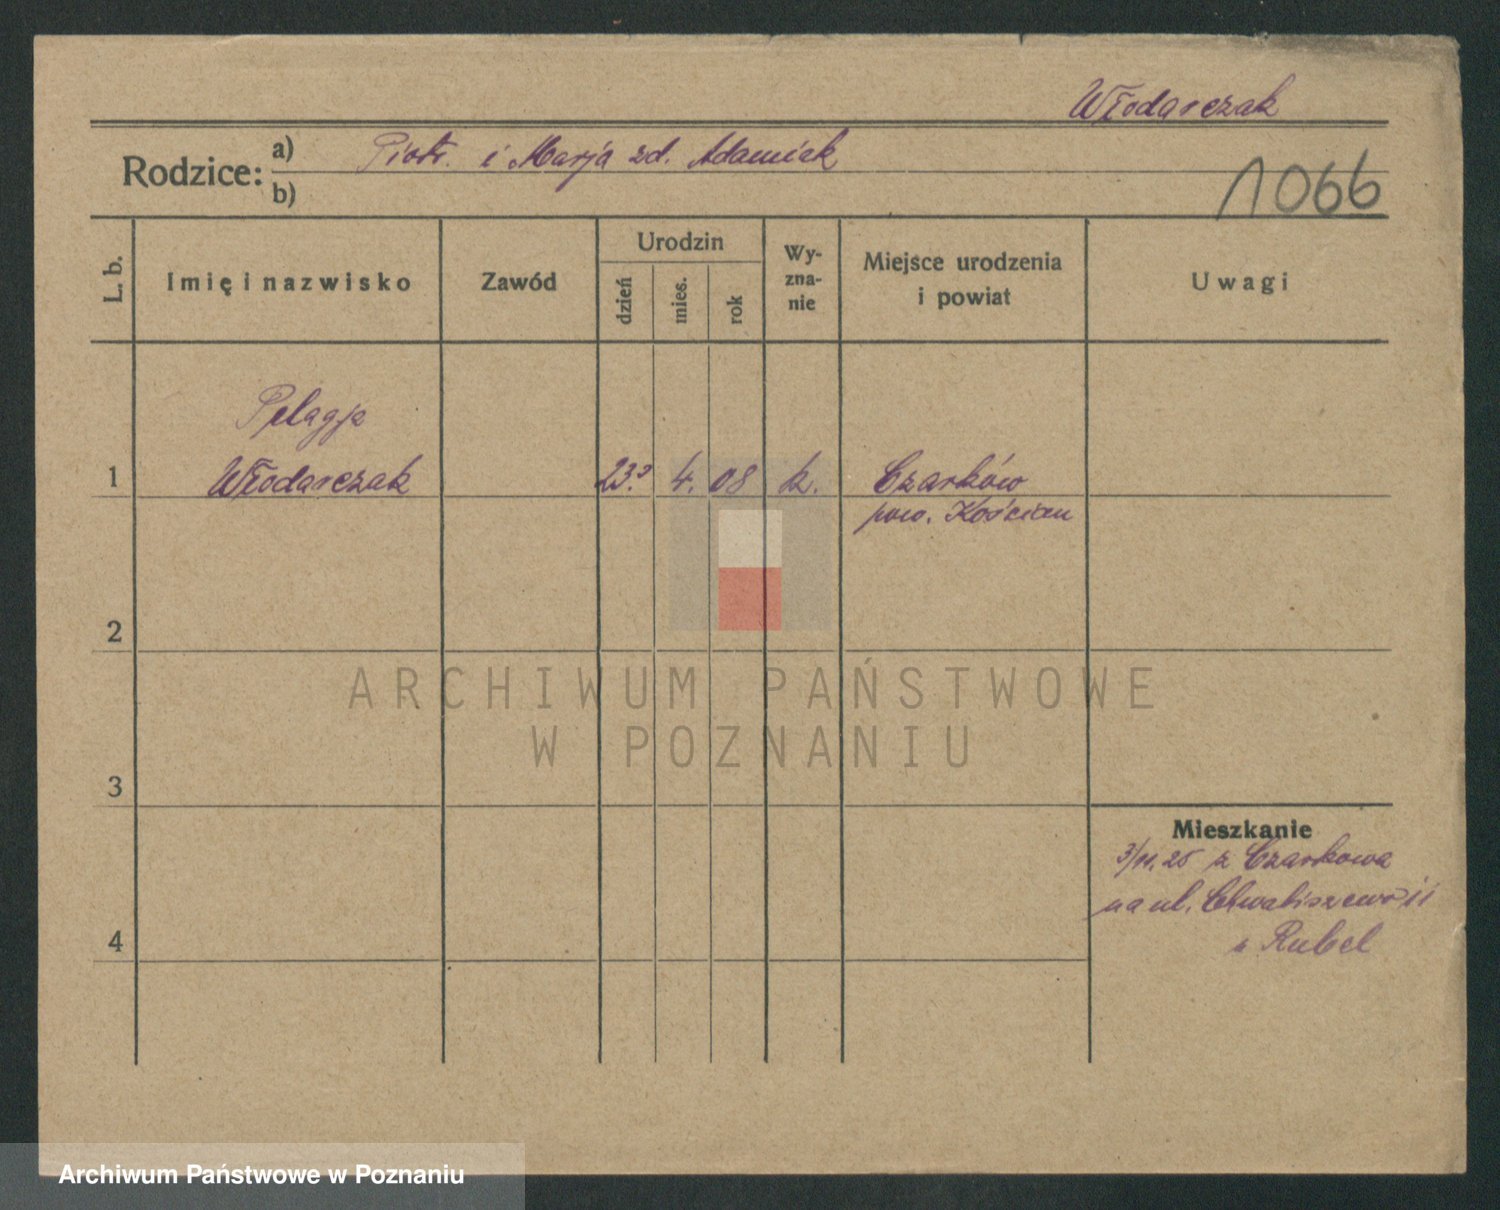 Włodarczak
Rodzice: a) Piotr. i Marja zd. Adamiak
b)
1066
L. b.
Imię i nazwisko
Zawód
Urodzin
dzień
mies.
rok
Wy-
zna-
nie
Miejsce urodzenia
i powiat
Uwagi
Pelagja
1 Włodarczak 23. 4. 08 k. Czarków
pow. Kościan
2
3
4
Mieszkanie
3/11.25 z Czarkowa
na ul. Chwaliszewo
u Rubel
ARCHIWUM PAŃSTWOWE
W POZNANIU
Archiwum Państwowe w Poznaniu